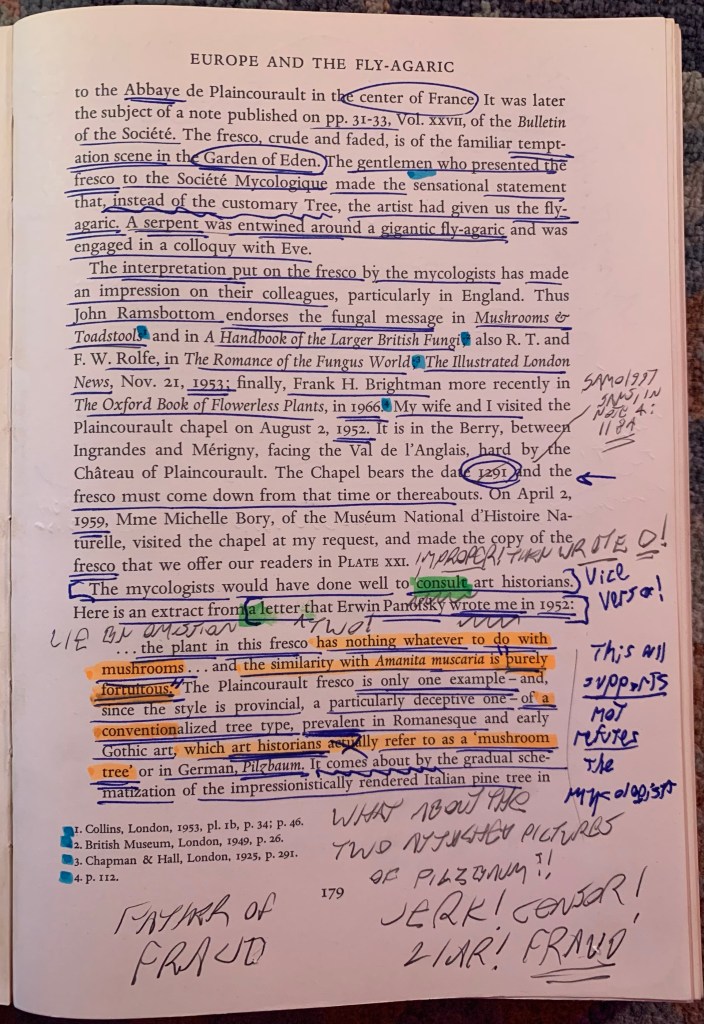 EUROPE AND THE FLY-AGARIC
to the Abbaye de Plaincourault in the center of France. It was later
the subject of a note published on pp. 31-33, Vol. XXVII, of the Bulletin
of the Société. The fresco, crude and faded, is of the familiar tempt-
ation scene in the Garden of Eden. The gentlemen who presented the
fresco to the Société Mycologique made the sensational statement
that, instead of the customary Tree, the artist had given us the fly-
agaric. A serpent was entwined around a gigantic fly-agaric and was
engaged in a colloquy with Eve.
The interpretation put on the fresco by the mycologists has made
an impression on their colleagues, particularly in England. Thus
John Ramsbottom endorses the fungal message in Mushrooms &
Toadstools and in A Handbook of the Larger British Fungi also R. T. and
F. W. Rolfe, in The Romance of the Fungus World The Illustrated London
News, Nov. 21, 1953; finally, Frank H. Brightman more recently in
The Oxford Book of Flowerless Plants, in 1966. My wife and I visited the
Plaincourault chapel on August 2, 1952. It is in the Berry, between
Ingrandes and Mérigny, facing the Val de l'Anglais, hard by the
Château of Plaincourault. The Chapel bears the date 1291 and the
fresco must come down from that time or thereabouts. On April 2,
1959, Mme Michelle Bory, of the Muséum National d'Histoire Na-
turelle, visited the chapel at my request, and made the copy of the
fresco that we offer our readers in PLATE XXI.
The mycologists would have done well to consult art historians.
Here is an extract from a letter that Erwin Panofsky wrote me in 1952:
... the plant in this fresco has nothing whatever to do with
mushrooms ... and the similarity with Amanita muscaria is purely
fortuitous. The Plaincourault fresco is only one example – and,
since the style is provincial, a particularly deceptive one – of a
conventionalized tree type, prevalent in Romanesque and early
Gothic art, which art historians actually refer to as a 'mushroom
tree' or in German, Pilzbaum. It comes about by the gradual sche-
matization of the impressionistically rendered Italian pine tree in
1. Collins, London, 1953, pl. 1b, p. 34; p. 46.
2. British Museum, London, 1949, p. 26.
3. Chapman & Hall, London, 1925, p. 291.
4. p. 112.
179
NOTE 4:
1184
WROTE D!
Vice
Versa!
LIE BY OMISSION
This all
supports
not
refutes
the
mycologists
WHAT ABOUT THE
TWO ATTACHED PICTURES
OF PILZBAUM!!
JERK! CENSOR!
LIAR! FRAUD!
FATHER OF
FRAUD